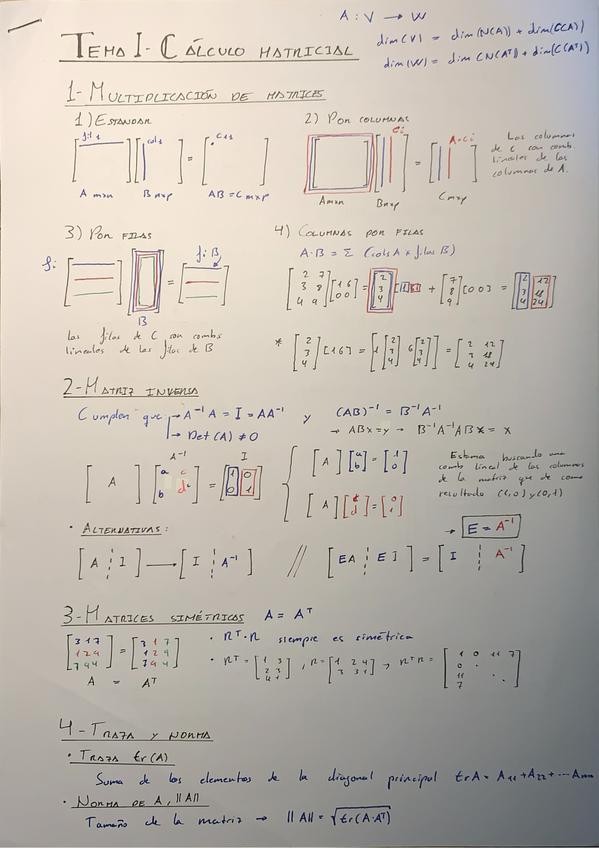 A : V → W
TEMA I - CÁLCULO MATRICIAL
dim(V) = dim(N(A)) + dim(C(A))
dim(W) = dim(N(Aᵀ)) + dim(C(Aᵀ))
1- MULTIPLICACIÓN DE MATRICES
1) ESTANDAR
2) POR COLUMNAS
fil 1 col 1 = C11
Ci A·Ci
A mxn B nxp AB = C mxp
Amxn Bnxp Cmxp
Las columnas
de C son comb.
lineales de las
columnas de A.
3) POR FILAS
fi = fi·B
B
Las filas de C son combs
lineales de las filas de B
4) COLUMNAS POR FILAS
A·B = Σ (cols A × filas B)
[2 7; 3 8; 4 9] [1 6; 0 0] = [2; 3; 4] [1 6] + [7; 8; 9] [0 0] = [2 12; 3 18; 4 24]
* [2; 3; 4] [1 6] = [1 [2; 3; 4] 6 [2; 3; 4]] = [2 12; 3 18; 4 24]
2- MATRIZ INVERSA
Cumplen que: → A⁻¹A = I = AA⁻¹ y (AB)⁻¹ = B⁻¹A⁻¹
→ Det(A) ≠ 0
→ ABx = y → B⁻¹A⁻¹ABx = x
A⁻¹ I
[A] [a c; b d] = [1 0; 0 1]
[A] [a; b] = [1; 0]
[A] [c; d] = [0; 1]
Estamos buscando una
comb lineal de las columnas
de la matriz que de como
resultado (1,0) y (0,1)
· ALTERNATIVAS:
→ E = A⁻¹
[A ¦ I] → [I ¦ A⁻¹] // [EA ¦ EI] = [I ¦ A⁻¹]
3- MATRICES SIMÉTRICAS A = Aᵀ
[3 1 7; 1 2 9; 7 9 4] = [3 1 7; 1 2 9; 7 9 4]
A = Aᵀ
· Rᵀ·R siempre es simétrica
· Rᵀ = [1 3; 2 3; 4 1], R = [1 2 4; 3 3 1], RᵀR = [10 11 7; 11; 7]
4- TRAZA Y NORMA
· TRAZA tr(A)
Suma de los elementos de la diagonal principal trA = A11 + A22 + ... Ann
· NORMA DE A, ||A||
Tamaño de la matriz → ||A|| = √tr(A·Aᵀ)